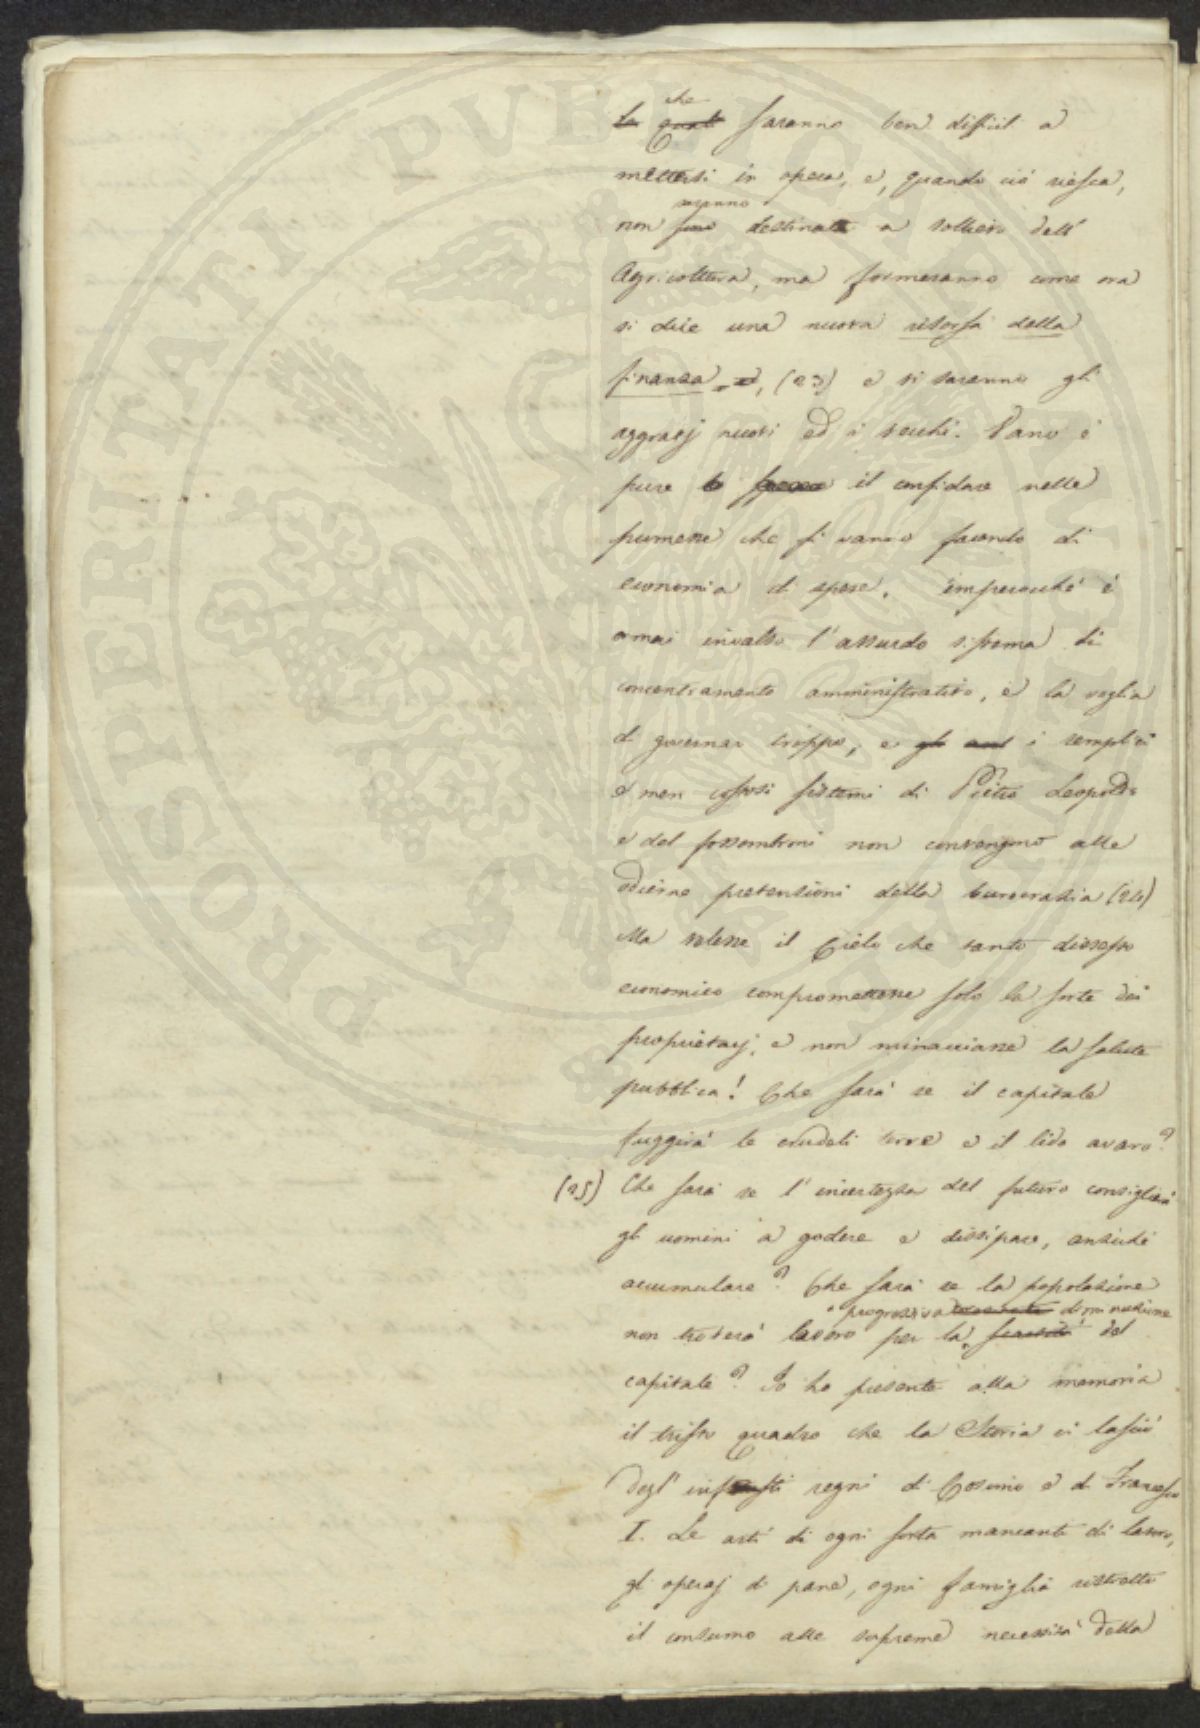 che
le quali saranno ben difficil a
mettersi in opera, e, quando ciò riesca,
saranno
non sono destinate a sollievo dell'
Agricoltura, ma formeranno come ora
si dice una nuova risorsa della
finanza, (23) e vi saranno gli
aggravj nuovi ed i vecchi. Vano è
pure lo il confidare nelle
promesse che si vanno facendo di
economia di spese, imperocchè è
ormai invalso l'assurdo sistema di
concentramento amministrativo, e la voglia
di governar troppo, e gli i semplici
e men costosi sistemi di Pietro Leopoldo
e del Fossombroni non convengono alle
odierne pretensioni della burocrazia (24)
Ma volesse il Cielo che tanto dissesto
economico compromettesse solo la sorte dei
proprietarj, e non minacciasse la salute
pubblica! Che sarà se il capitale
fuggirà le crudeli terre e il lido avaro?
(25) Che sarà se l'incertezza del futuro consiglierà
gli uomini a godere e dissipare, anzichè
accumulare? Che sarà se la popolazione
progressiva diminuzione
non troverà lavoro per la scarsità del
capitale? Io ho presente alla memoria
il tristo quadro che la Storia ci lasciò
degl' infausti regni di Cosimo e di Francesco
I. Le arti di ogni sorta mancanti di lavoro,
gli operaj di pane, ogni famiglia ristretto
il consumo alle supreme necessità della
PROSPERITATI PVBLICAE